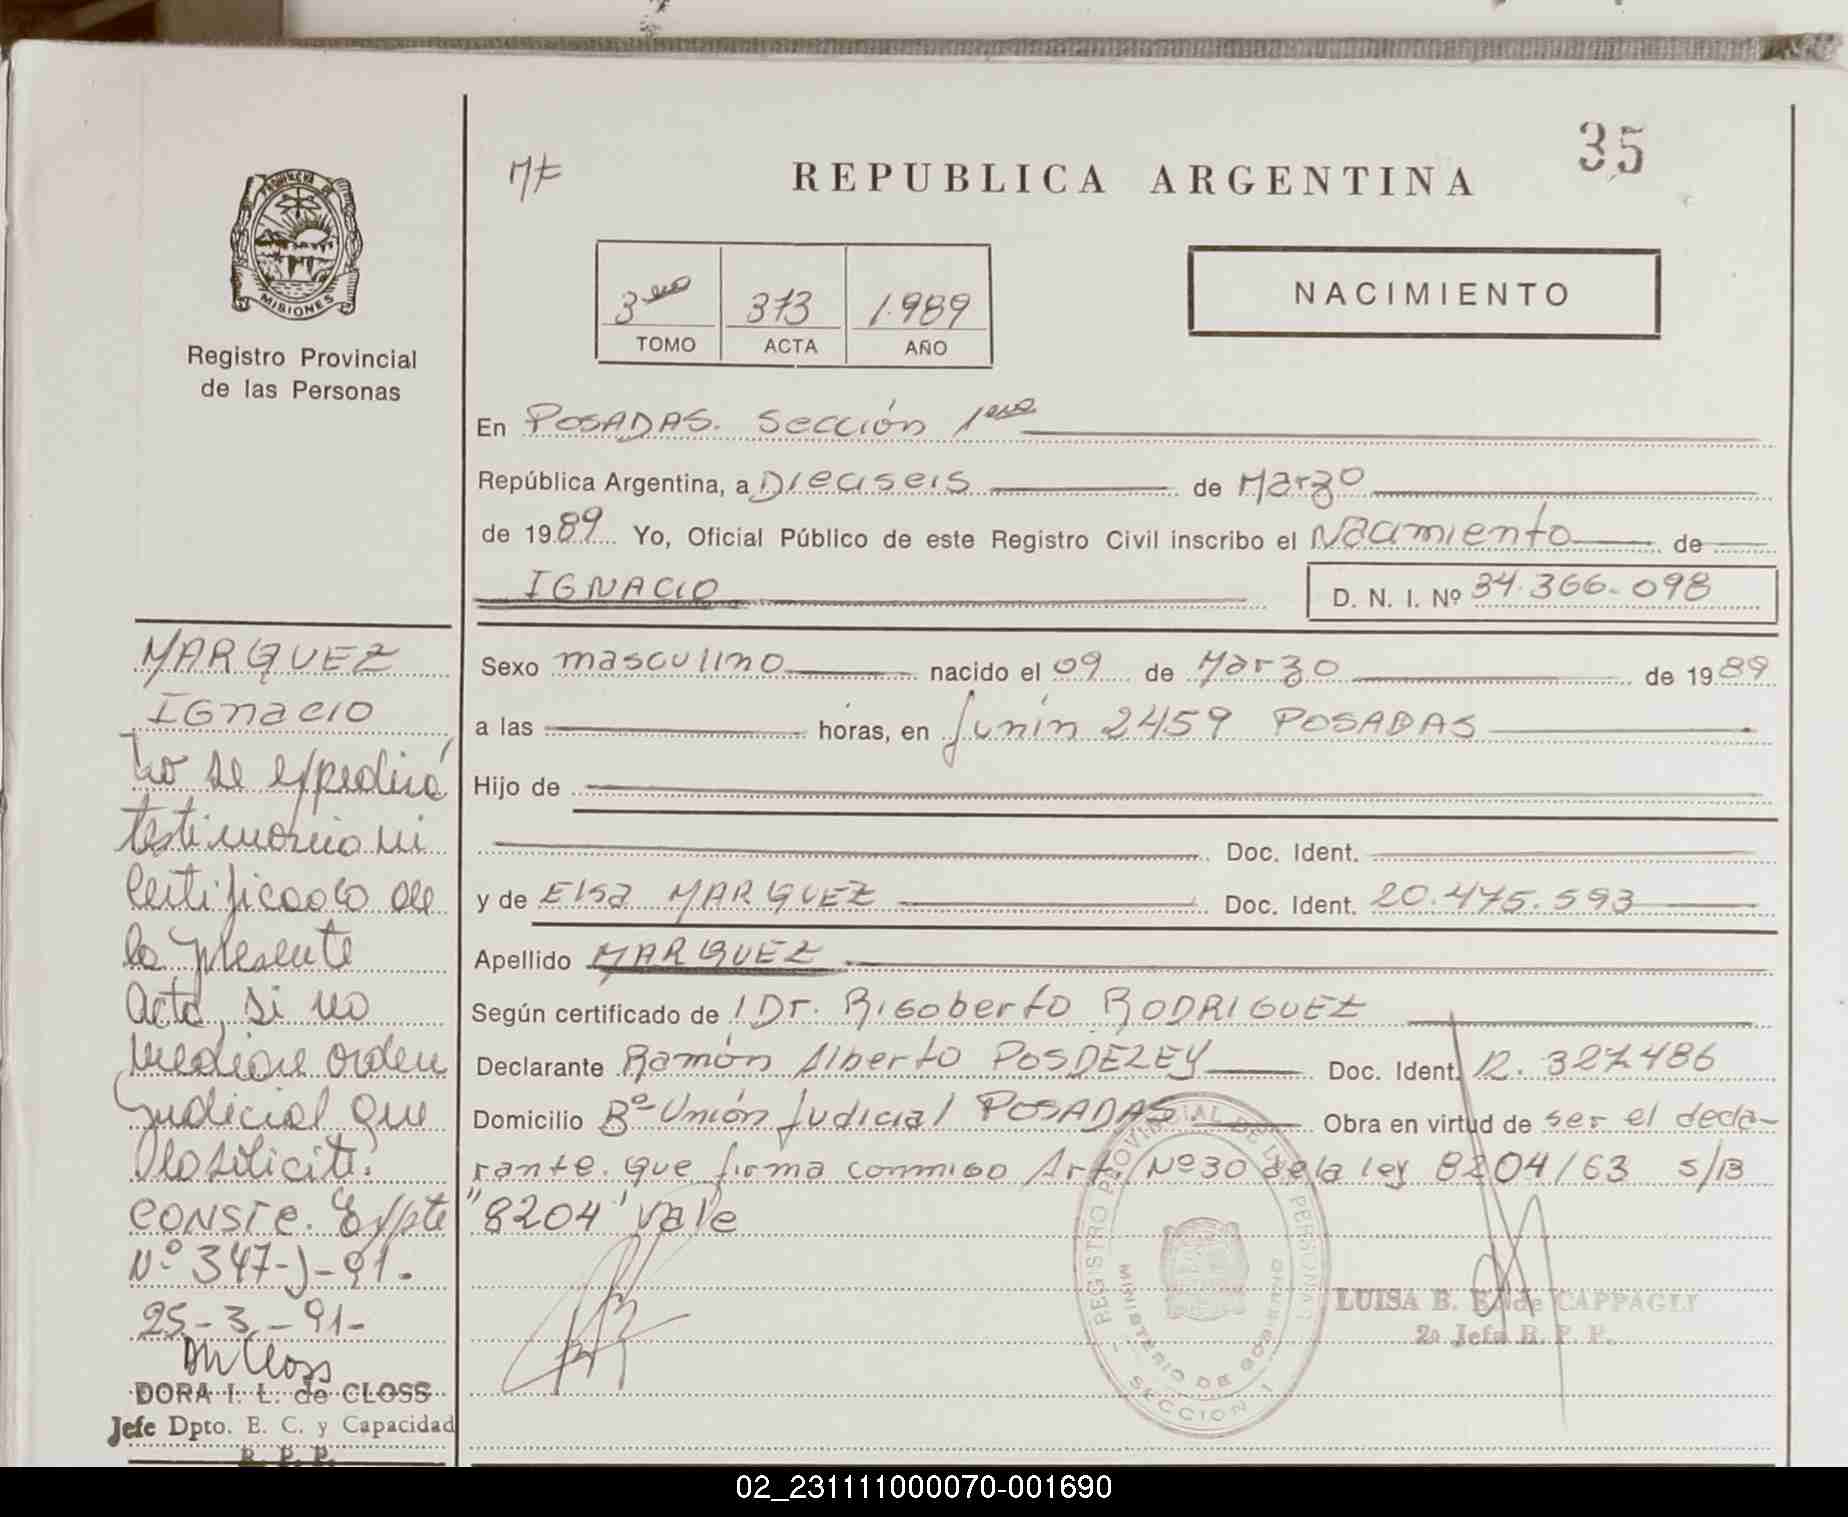 35
REPUBLICA ARGENTINA
PROVINCIA DE
MISIONES
Registro Provincial
de las Personas
3ero 313 1.989
TOMO ACTA AÑO
NACIMIENTO
En POSADAS. Sección 1era
República Argentina, a Dieciseis de Marzo
de 1989 Yo, Oficial Público de este Registro Civil inscribo el Nacimiento de
IGNACIO D. N. I. Nº 34.366.098
Sexo masculino nacido el 09 de Marzo de 1989
a las horas, en Junín 2459 POSADAS
Hijo de
Doc. Ident.
y de Elsa MARQUEZ Doc. Ident. 20.475.593
Apellido MARQUEZ
Según certificado de 1 Dr. Rigoberto RODRIGUEZ
Declarante Ramón Alberto POSDELEY Doc. Ident. 12.327.486
Domicilio Bº Unión Judicial POSADAS Obra en virtud de ser el decla-
rante. que firma conmigo Art. Nº 30 de la ley 8204/63 S/B
"8204" vale
MARQUEZ
IGnacio
No se expedirá
testimonio ni
certificado de
la presente
Acta, si no
mediare orden
Judicial que
lo solicite.
CONSTE. Expte
Nº 347-J-91.-
25-3-91-
DORA I. L. de CLOSS
Jefe Dpto. E. C. y Capacidad
R. P. P.
REGISTRO PROVINCIAL DE LAS PERSONAS
MINISTERIO DE GOBIERNO
SECCION 1
LUISA B. E. de CAPPAGLI
2a Jefa R. P. P.
02_231111000070-001690